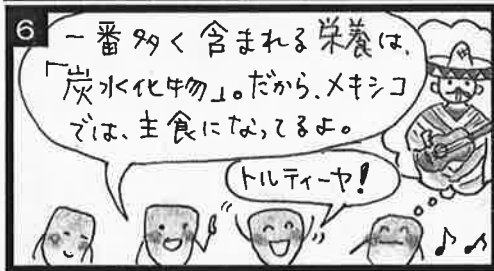 6
一番多く含まれる栄養は、
「炭水化物」。だから、メキシコ
では、主食になってるよ。
トルティーヤ!